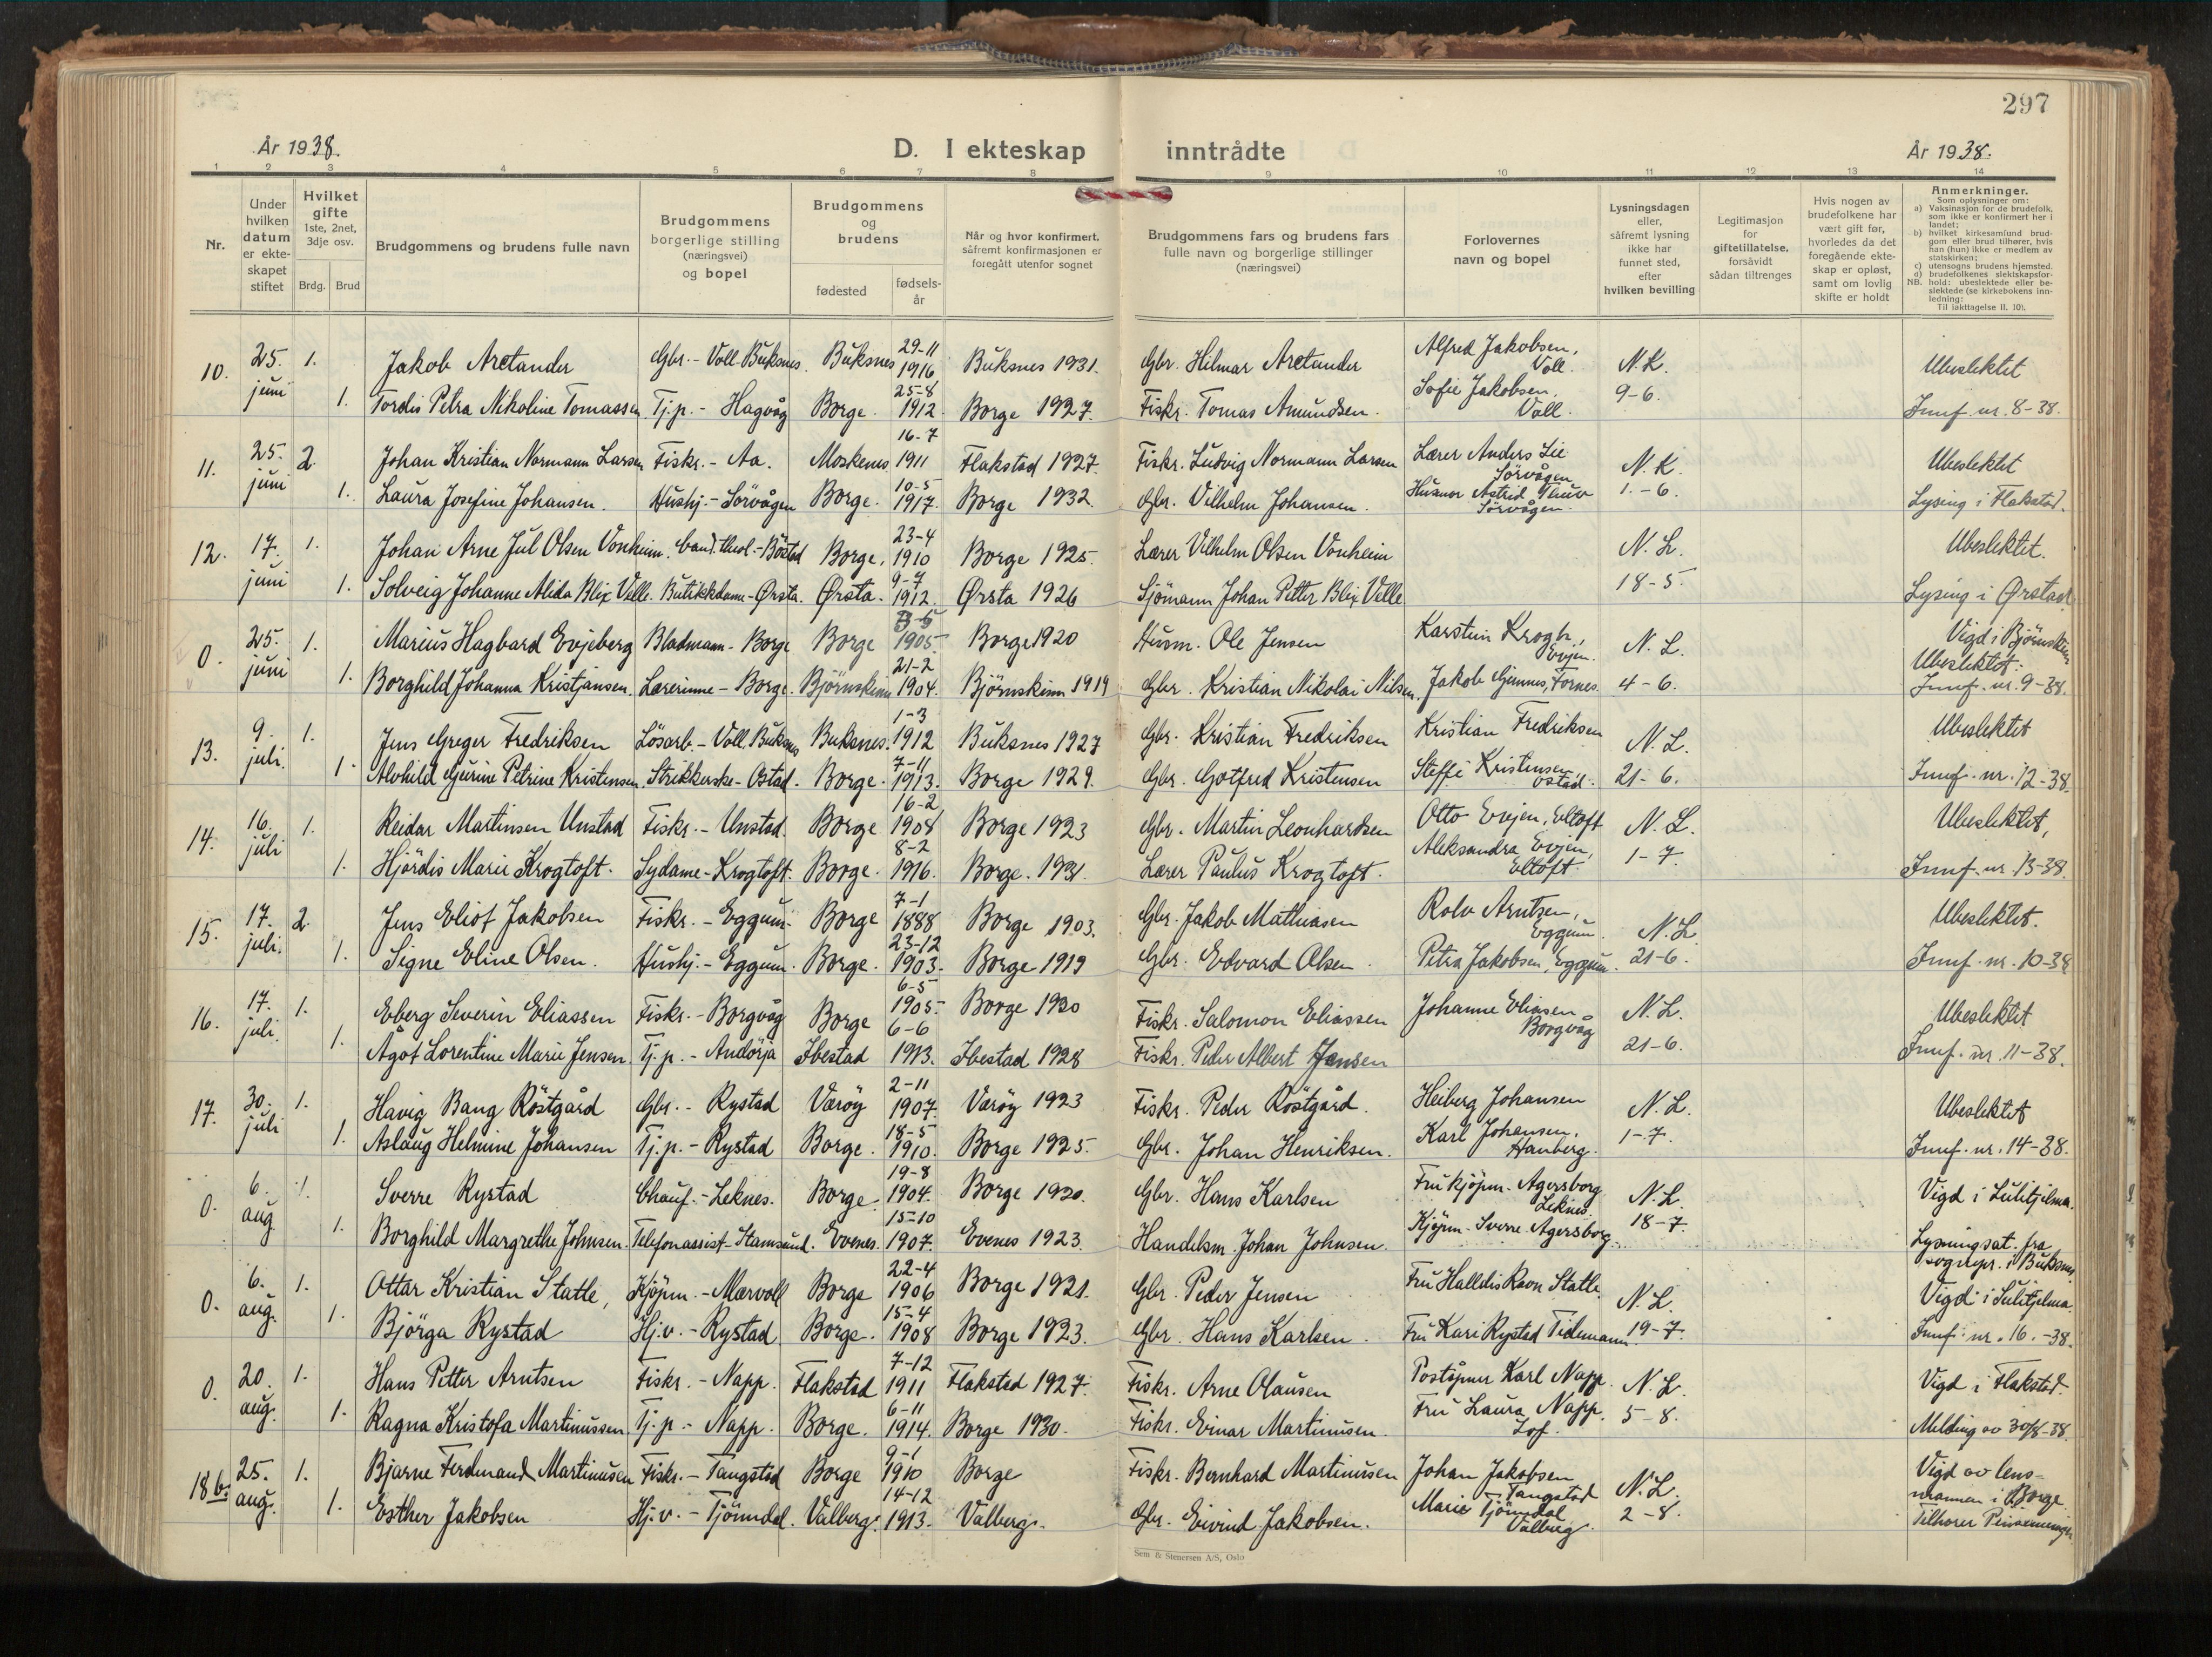 297
År 1938.
D. I ekteskap inntrådte
År 1938.
1 2 3 4 5 6 7 8 9 10 11 12 13 14
Nr.
Under
hvilken
datum
er ekte-
skapet
stiftet
Hvilket
gifte
1ste, 2net,
3dje osv.
Brdg. Brud
Brudgommens og brudens fulle navn
Brudgommens
borgerlige stilling
(næringsvei)
og bopel
Brudgommens
og
brudens
fødested
fødsels-
år
Når og hvor konfirmert,
såfremt konfirmasjonen er
foregått utenfor sognet
Brudgommens fars og brudens fars
fulle navn og borgerlige stillinger
(næringsvei)
Forlovernes
navn og bopel
Lysningsdagen
eller,
såfremt lysning
ikke har
funnet sted,
efter
hvilken bevilling
Legitimasjon
for
giftetillatelse,
forsåvidt
sådan tiltrenges
Hvis nogen av
brudefolkene har
vært gift før,
hvorledes da det
foregående ekte-
skap er opløst,
samt om lovlig
skifte er holdt
Anmerkninger.
Som oplysninger om:
a) Vaksinasjon for de brudefolk,
som ikke er konfirmert her i
landet;
b) hvilket kirkesamfund brud-
gom eller brud tilhører, hvis
han (hun) ikke er medlem av
statskirken;
c) utensogns brudens hjemsted.
d) brudefolkenes slektskapsfor-
NB. hold: ubeslektede eller be-
slektede (se kirkebokens inn-
ledning:
Til iakttagelse II. 10).
10. 25. juni 1. Jakob Arctander Gbr. - Voll. Buksnes. Buksnes 29-11 1916 Buksnes 1931. Gbr. Hilmar Arctander Alfred Jakobsen, Voll. N.L. Ubeslektet
1. Tordis Petra Nikoline Tomassen Tj.p. - Hagvåg Borge. 25-8 1912. Borge 1927. Fiskr. Tomas Amundsen. Sofie Jakobsen, Voll. 9-6. Jmnf. nr. 8-38.
11. 25. juni 2. Johan Kristian Normann Larsen Fiskr. - Aa. Moskenes 16-7 1911 Flakstad 1927. Fiskr. Ludvig Normann Larsen Lærer Anders Lie Sörvågen N.K. Ubeslektet
1. Laura Josefine Johansen. Hushj. - Sörvågen Borge. 10-5 1917. Borge 1932. Gbr. Vilhelm Johansen. Husmor Astrid Sörvågen. 1.-6. Lysing i Flakstad.
12. 17. juni 1. Johan Arne Jul Olsen Vonheim. Cand. theol. - Böstad Borge, 23-4 1910 Borge 1925. Lærer Vilhelm Olsen Vonheim N.L. Ubeslektet.
1. Solveig Johanne Alida Blix Velle. Butikkdame - Ørsta. Ørsta. 9-7 1912. Ørsta 1926 Sjömann Johan Petter Blix Velle. 18-5. Lysing i Ørstad
0. 25. juni 1. Marius Hagbard Evjeberg Bladmann - Borge Borge 3-5 1905. Borge 1920 Husm. Ole Jensen Karstein Krogh, Evjen. N.L. Vigd i Björnskinn
1. Borghild Johanna Kristjansen. Lærerinne - Borge. Björnskinn 21-2 1904. Björnskinn 1919 Gbr. Kristian Nikolai Nilsen. Jakob Gimnes, Fornes. 4-6. Ubeslektet. Jmnf. nr. 9-38.
13. 9. juli. 1. Jens Greger Fredriksen Lösarb. - Voll, Buksnes Buksnes. 1-3 1912 Buksnes 1927 Gbr. Kristian Fredriksen Kristian Fredriksen N.L. Ubeslektet
1. Alvhild Gjurine Petrine Kristensen. Strikkerske - Ostad. Borge. 7-11 1913. Borge 1929. Gbr. Gotfred Kristensen Steffi Kristensen Ostad. 21-6. Jmnf. nr. 12-38.
14. 16. juli 1. Reidar Martinsen Unstad Fiskr. - Unstad. Borge 16-2 1908 Borge 1923 Gbr. Martin Leonhardsen Otto Evjen, Eltoft N.L. Ubeslektet,
1. Hjördis Marie Krogtoft. Sydame - Krogtoft. Borge. 8-2 1916. Borge. 1931. Lærer Paulus Krogtoft. Aleksandra Evjen, Eltoft. 1-7. Jmnf. nr. 13-38.
15. 17. juli. 2. Jens Eliot Jakobsen Fiskr. - Eggum. Borge 7-1 1888 Borge 1903. Gbr. Jakob Mathiasen Rolv Arntzen, Eggum. N.L. Ubeslektet.
1. Signe Eline Olsen. Hushj. - Eggum. Borge. 23-12 1903. Borge 1919 Gbr. Edvard Olsen. Petra Jakobsen, Eggum. 21-6. Jmnf. nr. 10-38
16. 17. juli. 1. Eberg Severin Eliassen Fiskr. - Borgvåg Borge 6-5 1905. Borge 1920 Fiskr. Salomon Eliassen Johanne Eliasen Borgvåg N.L. Ubeslektet
1. Ågot Lorentine Marie Jensen Tj.p. - Andörja Ibestad 6-6 1913. Ibestad 1928 Fiskr. Peder Albert Jensen 21-6. Jmnf. nr. 11-38.
17. 30. juli 1. Havig Bang Röstgård Gbr. - Rystad Væröy 2-11 1907. Væröy 1923 Fiskr. Peder Röstgård. Heiberg Johansen N.L. Ubeslektet
1. Aslaug Helmine Johansen Tj.p. - Rystad Borge. 18-5 1910. Borge 1925. Gbr. Johan Henriksen. Karl Johansen, Hauberg. 1-7. Jmnf. nr. 14-38.
0. 6. aug 1. Sverre Rystad Chauf. - Leknes. Borge. 19-8 1904. Borge 1920. Gbr. Hans Karlsen Fru kjöpm. Agersborg Leknes. N.L. Vigd i Sulitjelma.
1. Borghild Margrethe Johnsen. Telefonassist - Stamsund. Evenes. 15-10 1907. Evenes 1923. Handelsm. Johan Johnsen. Kjöpm. Sverre Agersborg. 18-7. Lysningsat. fra sognepr. i Buksnes.
0. 6. aug. 1. Ottar Kristian Statle, Kjöpm. - Mærvoll Borge 22-4 1906 Borge 1921. Gbr. Peder Jensen Fru Halldis Ravn Statle. N.L. Vigd i Sulitjelma.
1. Björga Rystad Hj.v. - Rystad. Borge. 15-4 1908 Borge 1923. Gbr. Hans Karlsen. Fru Kari Rystad Tidemann 19-7. Jmnf. nr. 16.-38.
0. 20. aug. 1. Hans Petter Arntsen Fiskr. - Napp. Flakstad 7-12 1911 Flakstad 1927. Fiskr. Arne Olausen Poståpner Karl Napp. N.L. Vigd i Flakstad
1. Ragna Kristofa Martinussen Tj.p. - Napp. Borge. 6-11 1914. Borge 1930. Fiskr. Einar Martinusen. Fru Laura Napp. Lof. 5-8. Melding av 30/8-38.
18 b. 25. aug. 1. Bjarne Ferdinand Martinusen Fiskr. - Tangstad Borge 9-1 1910 Borge Fiskr. Bernhard Martinusen Johan Jakobsen Tangstad N.L. Vigd av lens-
1. Esther Jakobsen Hj.v. - Tjönndal. Valberg. 14-12 1913. Valberg. Gbr. Eivind Jakobsen. Marie Tjönndal Valberg. 2-8. mannen i Borge. Tilhører
Sem & Stenersen A/S, Oslo